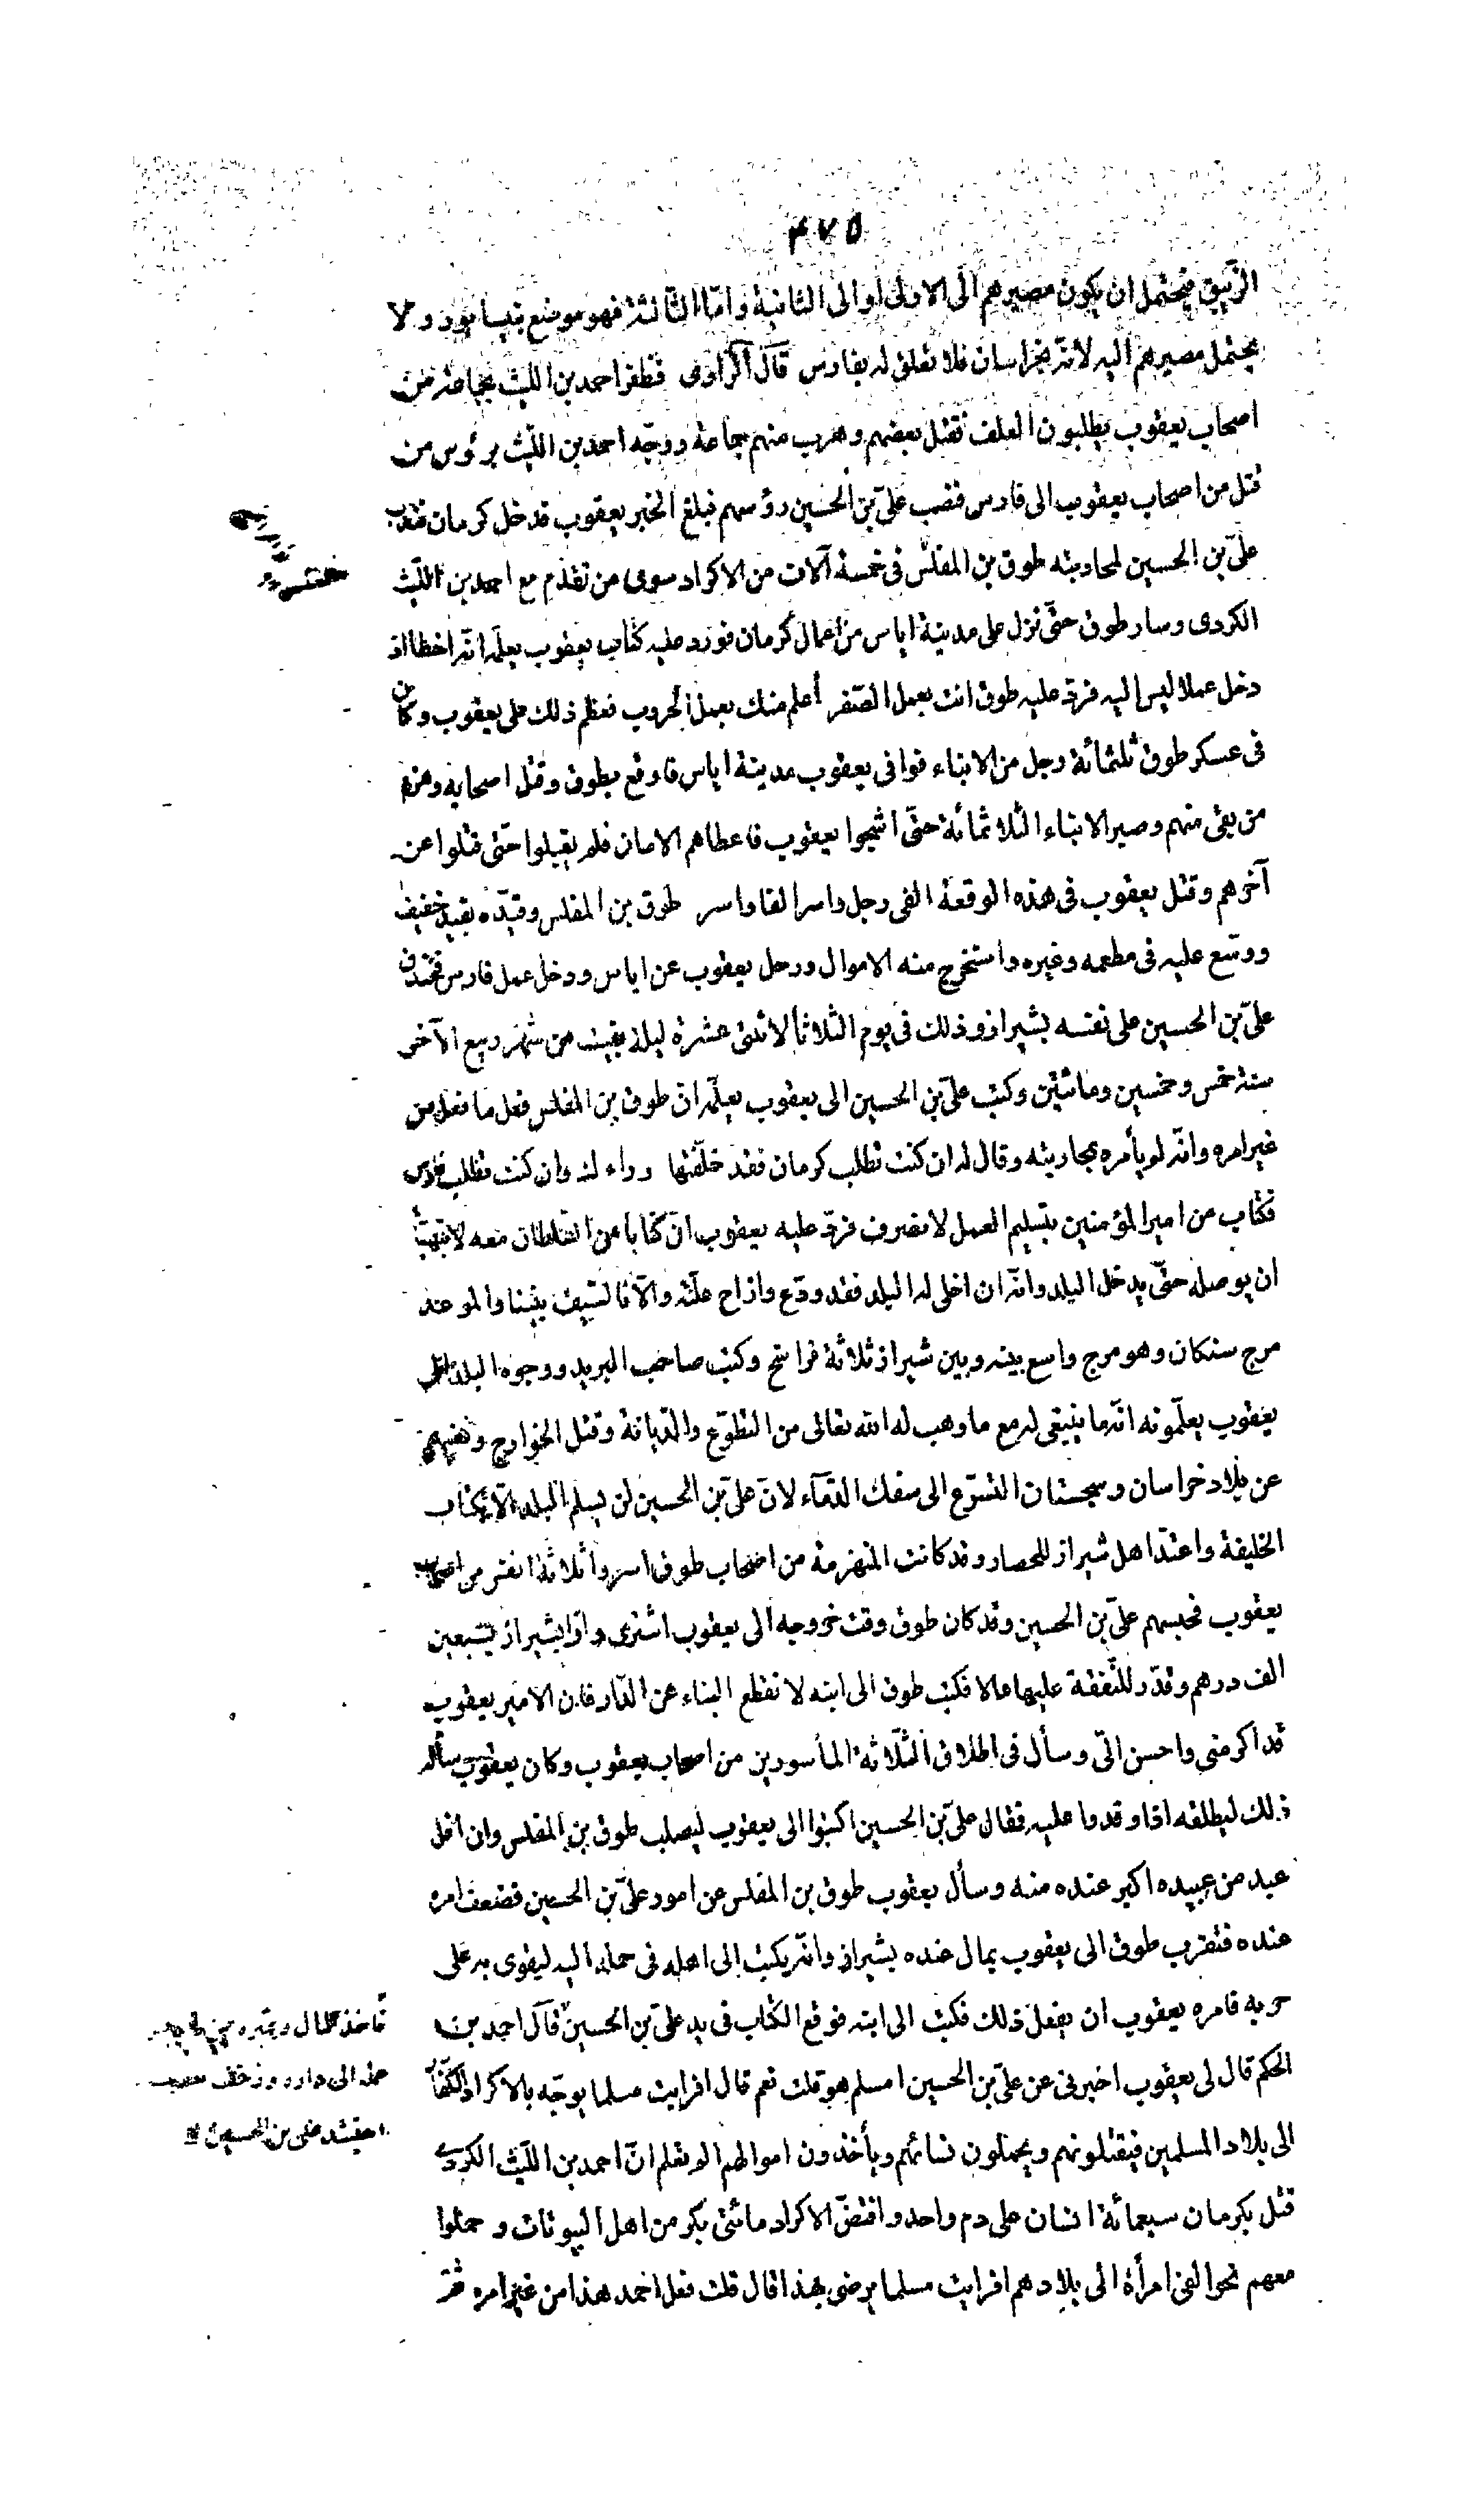 ٤٧٥
الزيبق فيحتمل ان يكون مصيرهم الى الاولى او الى الثانية واما الثالثة فهو موضع بنيسابور ولا
يحتمل مصيرهم اليه لانه بخراسان فلا تعلق له بفارس قال الراوى فظفر احمد بن الليث بجماعة من
اصحاب يعقوب يطلبون العلف فقتل بعضهم وهرب منهم جماعة ووجّه احمد بن الليث برؤس من
قتل من اصحاب يعقوب الى فارس فنصب علىّ بن الحسين رؤسهم فبلغ الخبر يعقوب فدخل كرمان فندب
علىّ بن الحسين لمحاربته طوق بن المغلس فى خمسة آلاف من الاكراد سوى من تقدّم مع احمد بن الليث
الكردى وسار طوق حتّى نزل على مدينة اياس من اعمال كرمان فورد عليه كتاب يعقوب يعلمه انّه اخطأ اذ
دخل عملا ليس اليه فردّ عليه طوق انت بعمل الصّفر أعلم منك بعمل الحروب فعظم ذلك على يعقوب وكان
فى عسكر طوق ثلثمائة رجل من الابناء فوافى يعقوب مدينة اياس فاوقع بطوق وقتل اصحابه وهزم
من بقى منهم وصبر الابناء الثلاثمائة حتّى اشجوا يعقوب فاعطاهم الامان فلم يقبلوا حتّى قتلوا عن
آخرهم وقتل يعقوب فى هذه الوقعة الفى رجل واسر الفا واسر طوق بن المغلس وقيّده بقيد خفيف
ووسّع عليه فى مطعمه وغيره واستخرج منه الاموال ورحل يعقوب عن اياس ودخل عمل فارس فخندق
علىّ بن الحسين على نفسه بشيراز وذلك فى يوم الثلاثا لاثنتى عشرة ليلة بقيت من شهر ربيع الآخر
سنة خمس وخمسين ومائتين وكتب علىّ بن الحسين الى يعقوب يعلمه ان طوق بن المغلس فعل ما فعل من
غير امره وانّه لم يأمره بمحاربته وقال له ان كنت تطلب كرمان فقد خلّفتها وراءك وان كنت تطلب فارس
فكتاب من امير المؤمنين بتسليم العمل لانصرف فردّ عليه يعقوب انّ كتابا من السلطان معه لا يتهيّأ
ان يوصله حتّى يدخل البلد وانّه ان اخلى له البلد فقد ودّع وازاح علّته والّا فالسّيف بيننا والموعد
مرج سنكان وهو مرج واسع بينه وبين شيراز ثلاثة فراسخ وكتب صاحب البريد ووجوه البلد الى
يعقوب يعلمونه انّه ما ينبغى له مع ما وهب له الله تعالى من التطوّع والدّيانة وقتل الخوارج ونفيهم
عن بلاد خراسان وسجستان التسرّع الى سفك الدّمآء لانّ علىّ بن الحسين لن يسلم البلد الّا بكتاب
الخليفة واعتدّ اهل شيراز للحصار وقد كانت المنهزمة من اصحاب طوق اسروا ثلاثة انفس من اصحاب
يعقوب فحبسهم علىّ بن الحسين وقد كان طوق وقت خروجه الى يعقوب اشترى دارا بشيراز بسبعين
الف درهم وقدّر للنّفقة عليها مالا فكتب طوق الى ابنه لا تقطع البناء عن الدّار فان الامير يعقوب
قد اكرمنى واحسن الىّ وسأل فى اطلاق الثّلاثة المأسورين من اصحاب يعقوب وكان يعقوب سأله
ذلك ليطلقه اذا وقدوا عليه فقال علىّ بن الحسين اكتبوا الى يعقوب ليصلب طوق بن المغلس وان اقل
عبد من عبيده اكبر عنده منه وسأل يعقوب طوق بن المغلس عن امور علىّ بن الحسين فضعف امره
عنده فتقرب طوق الى يعقوب بمال عنده بشيراز وانّه يكتب الى اهله فى حمله اليه ليقوى به على
حربه فامره يعقوب ان يفعل ذلك فكتب الى ابنه فوقع الكتاب فى يد علىّ بن الحسين قال احمد بن
الحكم قال لى يعقوب اخبرنى عن علىّ بن الحسين امسلم هو قلت نعم قال افرايت مسلما يوجّه بالاكراد الكفّار
الى بلاد المسلمين فيقتلونهم ويحملون نسائهم ويأخذون اموالهم الم تعلم انّ احمد بن الليث الكردى
قتل بكرمان سبعمائة انسان على دم واحد وافتضّ الاكراد مائتى بكر من اهل البيوتات وحملوا
معهم نحو الفى امرأة الى بلادهم افرايت مسلما يرضى بهذا قال قلت فعل احمد هذا من غير امره ثمّ
فاخذ المال
حمله الى داره
علىّ بن الحسين